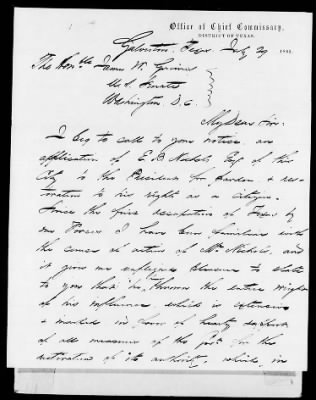 Office of Chief Commissary,
DISTRICT OF TEXAS.
Galveston, Texas July 29 186
The Honble James W. Grimes
U.S. Senate
Washington D.C.
My Dear Sir:
I beg to call to your notice, an
application of E. B. Nichols Esqr of this
City to the President for pardon & res-
toration to his rights as a citizen.
Since the first occupation of Texas by
our Forces I have been familiar with
the course of action of Mr. Nichols, and
it gives me unfeigned pleasure to state
to you that he throws the entire weight
of his influence, which is extensive
& marked in favor of hearty support
of all measures of the Govt for the
restoration of its authority, which, in